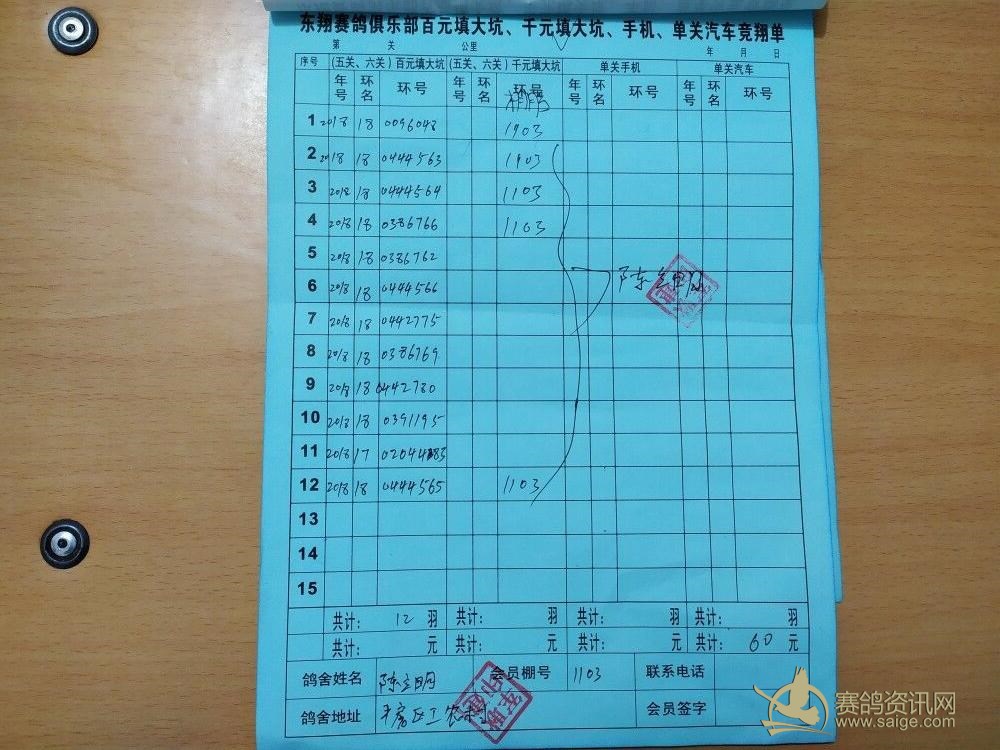 东翔赛鸽俱乐部百元填大坑、千元填大坑、手机、单关汽车竞翔单
第 关 公里 年 月 日
序号 (五关、六关)百元填大坑 (五关、六关)千元填大坑 单关手机 单关汽车
年号 环名 环号 年号 环名 环号 年号 环名 环号 年号 环名 环号
1 2018 18 0096048 1103
2 2018 18 0444563 1103
3 2018 18 0444564 1103
4 2018 18 0386766 1103
5 2018 18 0386762
6 2018 18 0444566
7 2018 18 0442775
8 2018 18 0386769
9 2018 18 0442780
10 2018 18 0391195
11 2018 17
12 2018 18 0444565 1103
13
14
15
共计: 12 羽 共计: 羽 共计: 羽 共计: 羽
共计: 元 共计: 元 共计: 元 共计: 60 元
鸽舍姓名 会员棚号 1103 联系电话
鸽舍地址 会员签字
赛鸽资讯网
www.saige.com